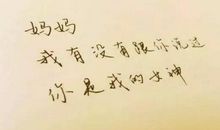 妈妈
我有没有跟你说过
你是我的女神